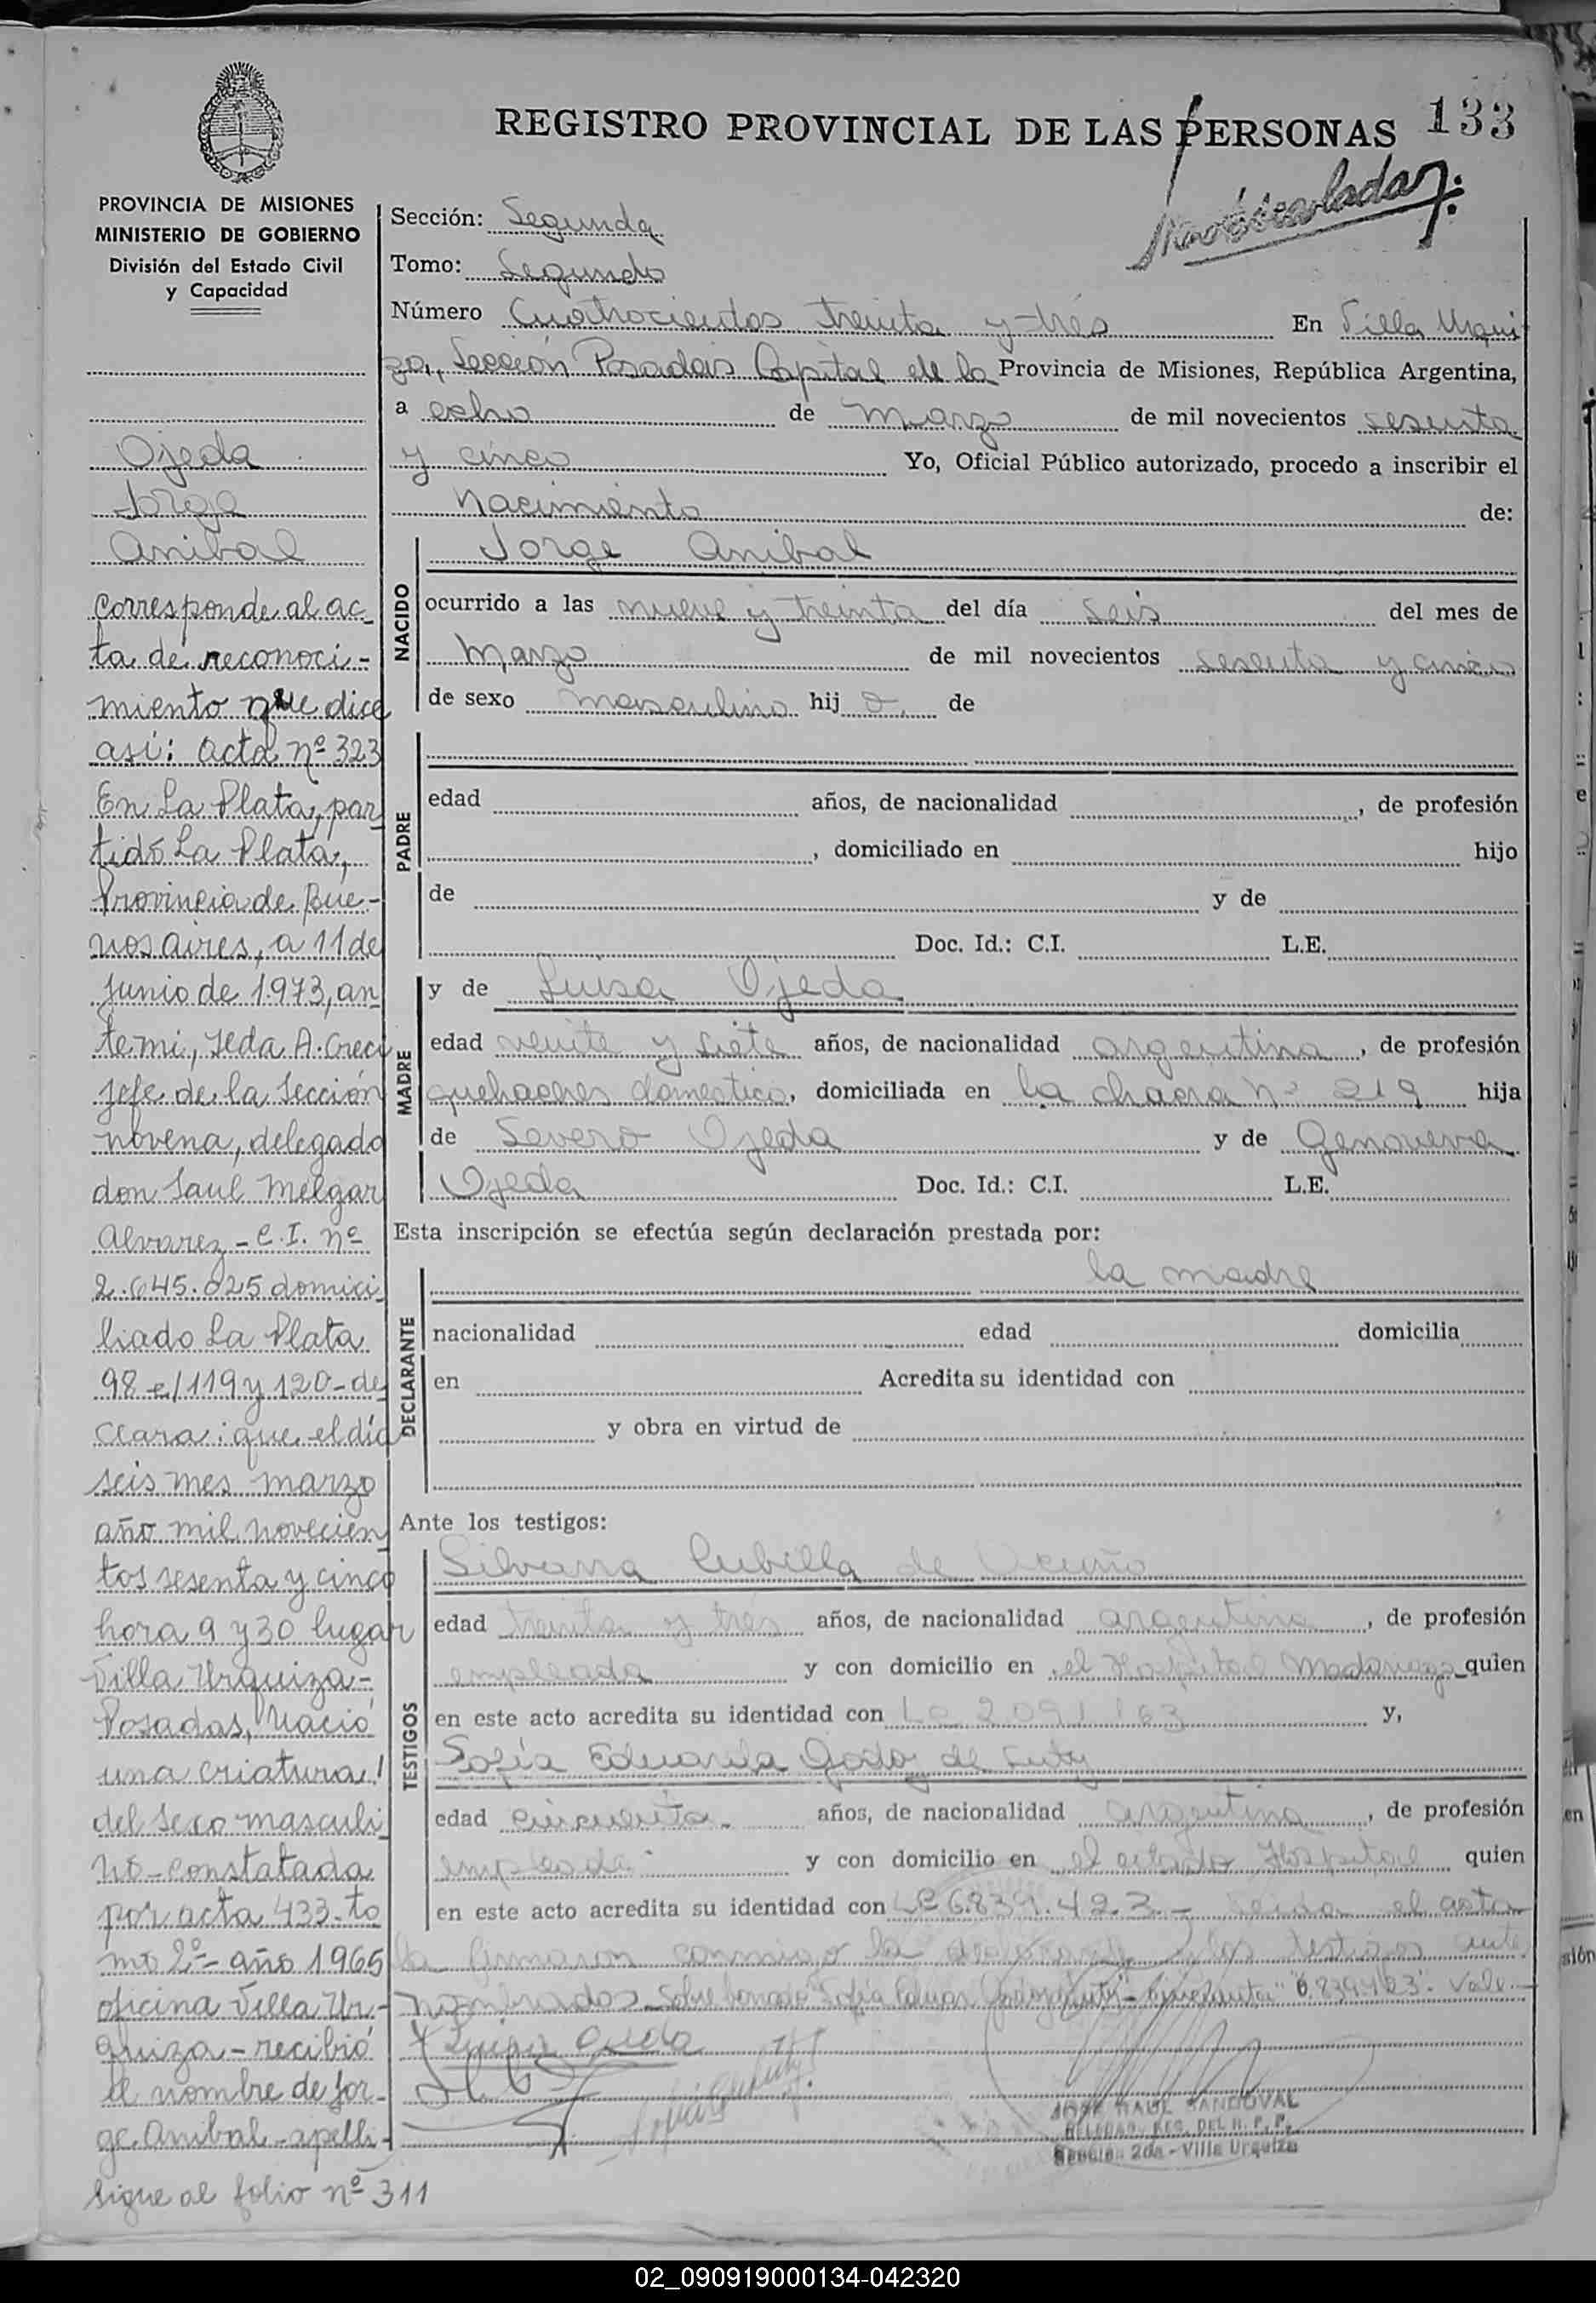 REGISTRO PROVINCIAL DE LAS PERSONAS 133
PROVINCIA DE MISIONES
MINISTERIO DE GOBIERNO
División del Estado Civil
y Capacidad
Ojeda
Jorge
Anibal
Corresponde al ac-
ta de reconoci-
miento que dice
asi: acta nº 323
En La Plata, par
tido La Plata,
Provincia de Bue-
nos aires, a 11 de
Junio de 1.973, an
te mi, Ieda A. Creci
Jefe de la Sección
novena, delegado
don Saul Melgar
Alvarez - C.I. nº
2.645.025 domici
liado La Plata
98 e/119 y 120 - de
clara: que el día
seis mes marzo
año mil novecien
tos sesenta y cinco
hora 9 y 30 lugar
Villa Urquiza -
Posadas, nació
una criatura
del sexo masculi
no - constatada
por acta 433 - to
mo 2º - año 1965
oficina Villa Ur-
quiza - recibió
el nombre de Jor-
ge Anibal - apelli-
sigue al folio nº 311
Sección: Segunda
Tomo: Segundo
Número Cuatrocientos treinta y tres En Villa Urqui
za, Sección Posadas Capital de la Provincia de Misiones, República Argentina,
a ocho de Marzo de mil novecientos sesenta
y cinco Yo, Oficial Público autorizado, procedo a inscribir el
nacimiento de:
NACIDO
Jorge Anibal
ocurrido a las nueve y treinta del día seis del mes de
Marzo de mil novecientos sesenta y cinco
de sexo masculino hij o de
PADRE
edad años, de nacionalidad , de profesión
, domiciliado en hijo
de y de
Doc. Id.: C.I. L.E.
MADRE
y de Luisa Ojeda
edad veinte y siete años, de nacionalidad argentina, de profesión
quehaceres domestico, domiciliada en la chacra nº 219 hija
de Severo Ojeda y de Genoveva
Ojeda Doc. Id.: C.I. L.E.
Esta inscripción se efectúa según declaración prestada por:
DECLARANTE
la madre
nacionalidad edad domicilia
en Acredita su identidad con
y obra en virtud de
Ante los testigos:
TESTIGOS
Silvana Cubilla de Acuña
edad treinta y tres años, de nacionalidad argentina, de profesión
empleada y con domicilio en el Hospital Madariaga quien
en este acto acredita su identidad con y,
Sofía Eduarda Godoy de
edad cincuenta años, de nacionalidad argentina, de profesión
empleada y con domicilio en el citado Hospital quien
en este acto acredita su identidad con LC 6.839.423 - Leida el acta
la firmaron conmigo la declarante y los testigos ante
nombrados Sobre borrado "6.839.423". Vale.
Luisa Ojeda
JOSE RAUL SANDOVAL
Sección 2da - Villa Urquiza
02_090919000134-042320